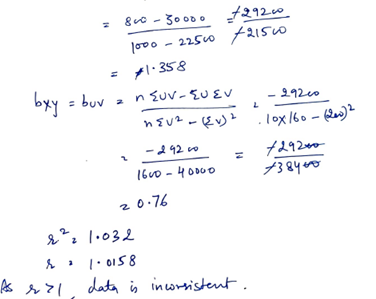 = 800 - 30000 / 1000 - 22500 = -29200 / -21500
= 1.358
bxy = buv = nΣUV - ΣUΣV / nΣV² - (ΣV)² = -29200 / 10×160 - (200)²
= -29200 / 1600 - 40000 = -29200 / -38400
= 0.76
r² = 1.032
r = 1.0158
As r>1, data is inconsistent.